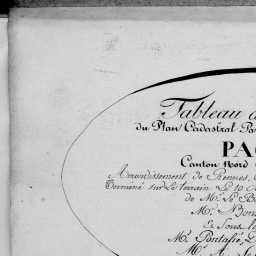 Tableau d
du Plan Cadastral Pa
PA
Canton Nord
Arrondissement de Rennes,
Terminé sur le terrain le 10
de Mr. Le B
Mr.
Et Sous l
Mr. Pontalié, D
Mr. A